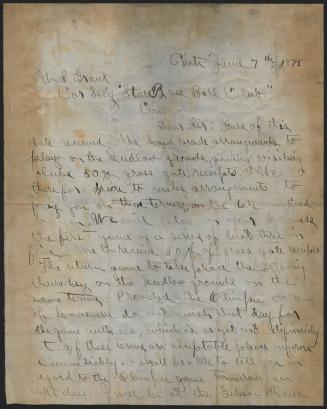 Cinti June 7th 1875
U. S. Grant
Cor Secy "Star Base Ball Club"
Cov.
Dear Sir: Yours of this
date received. We have made arrangements to
play on the Ludlow grounds, giving visiting
clubs 50% gross gate receipts. We
therefor desire to make arrangements to
play you on those terms, on the date mentioned
We will play on your grounds
the first game of a series of best three in
five we to receive 50% of gross gate receipts
The return game to take place the following
Thursday on the Ludlow grounds on the
same terms. Provided the Olympics
of Louisville do not wish that day for
the game with us, which is as yet not definitely
If these terms are acceptable please inform
me immediately. I shall be able to tell you in
regard to the Olympic game tomorrow or
next day will be at the Gibson House